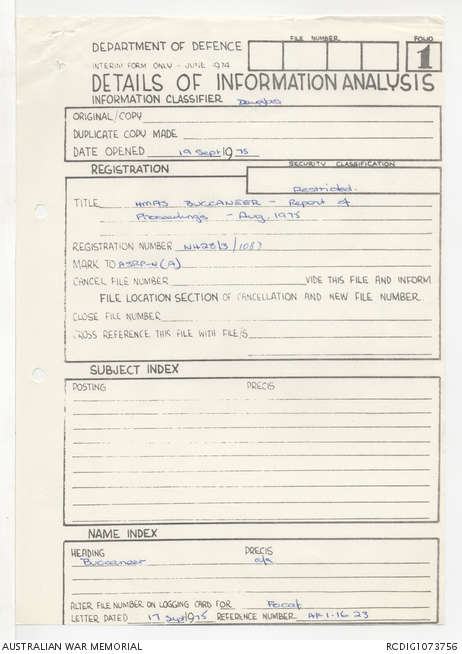 FILE NUMBER
FOLIO
DEPARTMENT OF DEFENCE
1
INTERIM FORM ONLY - JUNE 1974
DETAILS OF INFORMATION ANALYSIS
INFORMATION CLASSIFIER Douglas
ORIGINAL/COPY
DUPLICATE COPY MADE
DATE OPENED 19 Sept 1975
REGISTRATION
SECURITY CLASSIFICATION
Restricted.
TITLE HMAS BUCCANEER - Report of
Proceedings - Aug. 1975
REGISTRATION NUMBER NH28/3/1083
MARK TO ASRP-N(A)
CANCEL FILE NUMBER VIDE THIS FILE AND INFORM
FILE LOCATION SECTION OF CANCELLATION AND NEW FILE NUMBER
CLOSE FILE NUMBER
CROSS REFERENCE THIS FILE WITH FILE/S
SUBJECT INDEX
POSTING PRECIS
NAME INDEX
HEADING PRECIS
Buccaneer a/a
ALTER FILE NUMBER ON LOGGING CARD FOR Focaf
LETTER DATED 17 Sept 1975 REFERENCE NUMBER AF1-16-23
AUSTRALIAN WAR MEMORIAL
RCDIG1073756